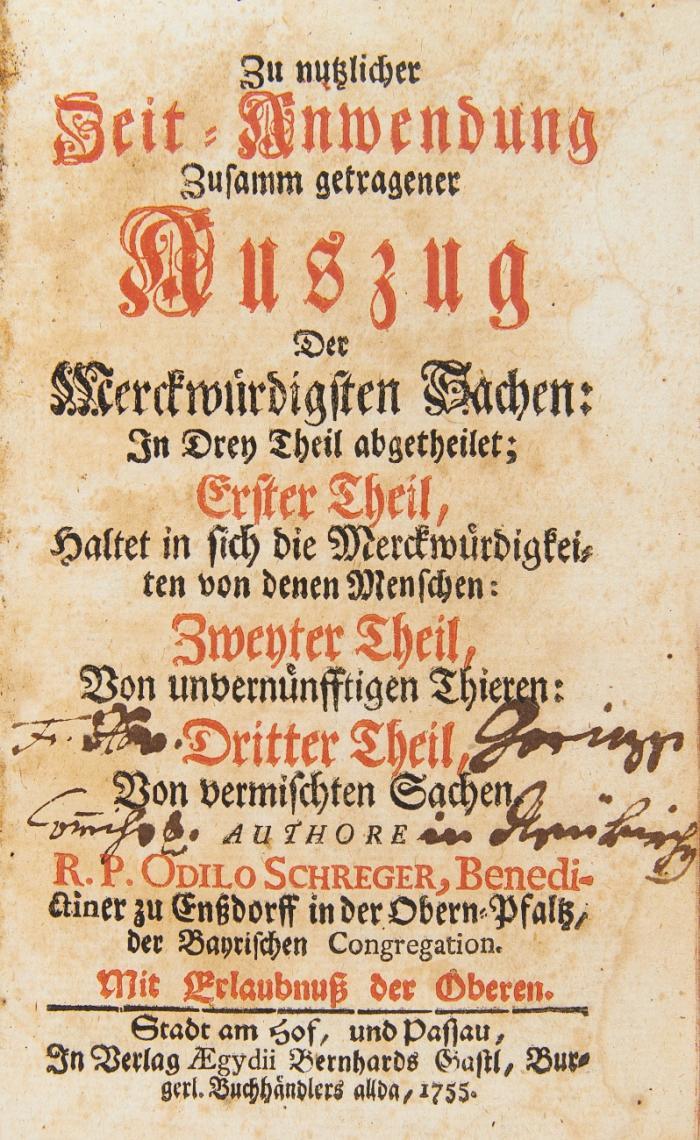 Zu nutzlicher
Zeit-Anwendung
Zusamm getragener
Auszug
Der
Merckwürdigsten Sachen:
In Drey Theil abgetheilet;
Erster Theil,
Haltet in sich die Merckwürdigkei-
ten von denen Menschen:
Zweyter Theil,
Von unvernünfftigen Thieren:
Dritter Theil,
Von vermischten Sachen
AUTHORE in
R. P. ODILO SCHREGER, Benedi-
ctiner zu Enßdorff in der Obern-Pfaltz,
der Bayrischen Congregation.
Mit Erlaubnuß der Oberen.
Stadt am Hof, und Passau,
In Verlag Ægydii Bernhards Gastl, Bur-
gerl. Buchhändlers allda, 1755.